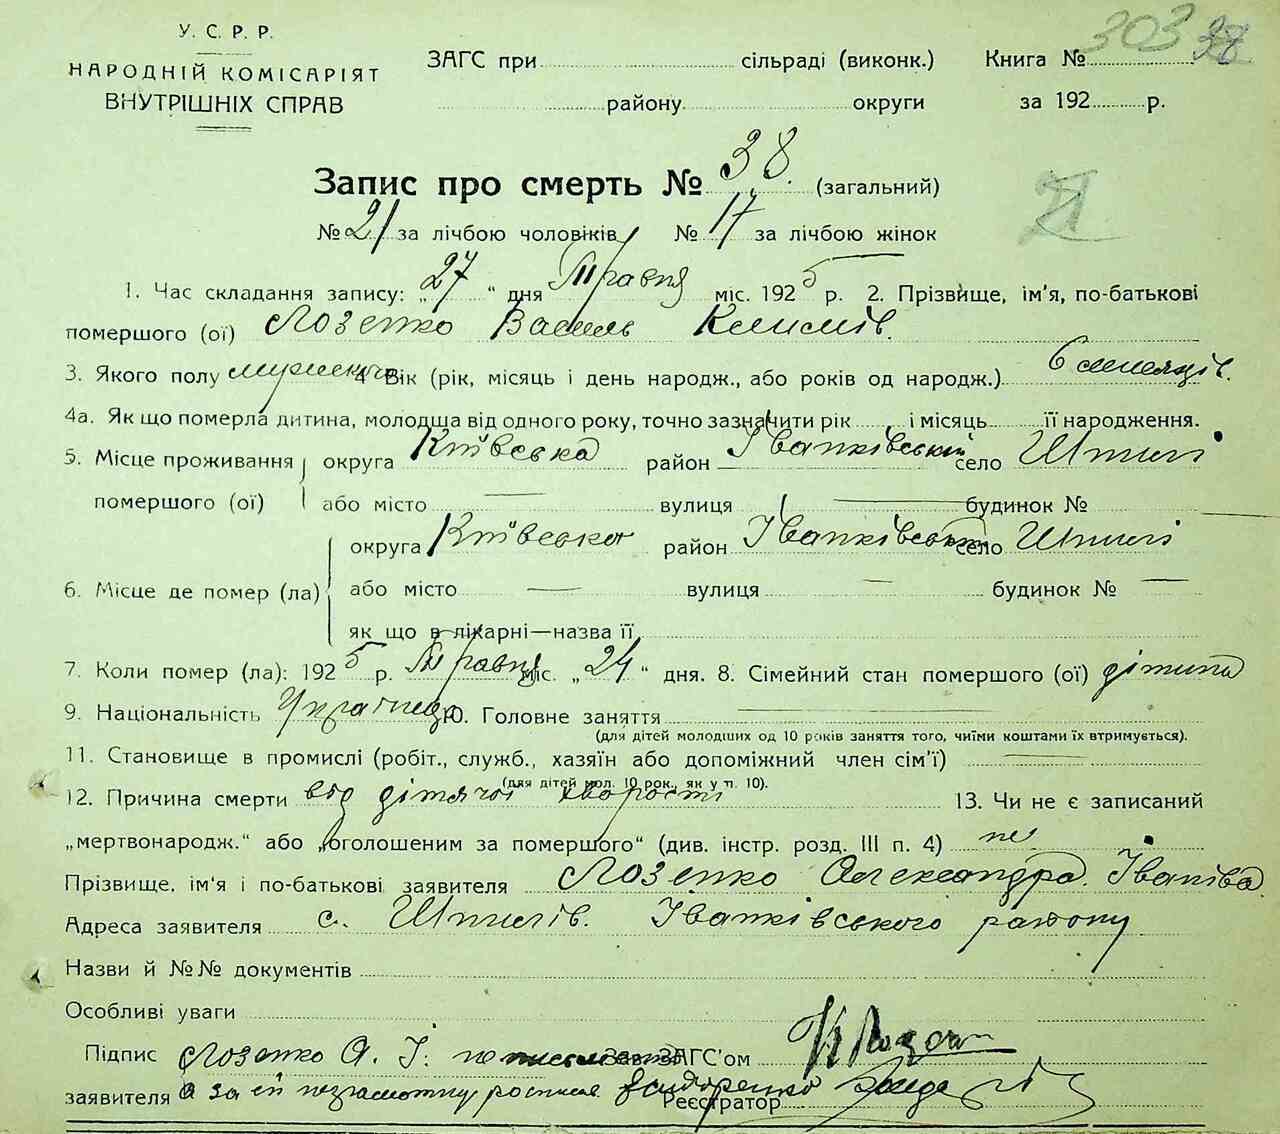 303 38
У. С. Р. Р.
НАРОДНІЙ КОМІСАРІЯТ
ВНУТРІШНІХ СПРАВ
ЗАГС при сільраді (виконк.) Книга №
району округи за 192 р.
Запис про смерть № 38. (загальний)
№ 21 за лічбою чоловіків № 17 за лічбою жінок
1. Час складання запису: „27“ дня Травня міс. 1925 р. 2. Прізвище, ім'я, по-батькові
помершого (ої) Лозенко Василь Климів.
3. Якого полу мужеского 4 Вік (рік, місяць і день народж., або років од народж.) 6 месяців.
4а. Як що померла дитина, молодша від одного року, точно зазначити рік і місяць її народження.
5. Місце проживання округа Київська район Іванківський село Шпилі
помершого (ої) або місто — вулиця — будинок № —
округа Київська район Іванківський село Шпилі
6. Місце де помер (ла) або місто — вулиця — будинок № —
як що в лікарні—назва її
7. Коли помер (ла): 1925 р. Травня міс. „24“ дня. 8. Сімейний стан помершого (ої) дітина
9. Національність Українець 10. Головне заняття —
(для дітей молодших од 10 років заняття того, чиїми коштами їх втримується).
11. Становище в промислі (робіт., служб., хазяїн або допоміжний член сім'ї) —
(для дітей мол. 10 рок., як у п. 10).
12. Причина смерти від дітячої хворости 13. Чи не є записаний
„мертвонародж.“ або „оголошеним за помершого“ (див. інстр. розд. III п. 4) не
Прізвище, ім'я і по-батькові заявителя Лозенко Олександра Іванівa
Адреса заявителя с. Шпилів. Іванківського району
Назви й №№ документів
Особливі уваги
Підпис Лозенко О. І. Зав. ЗАГС'ом
заявителя а за ей неграмотну росписа Реєстратор